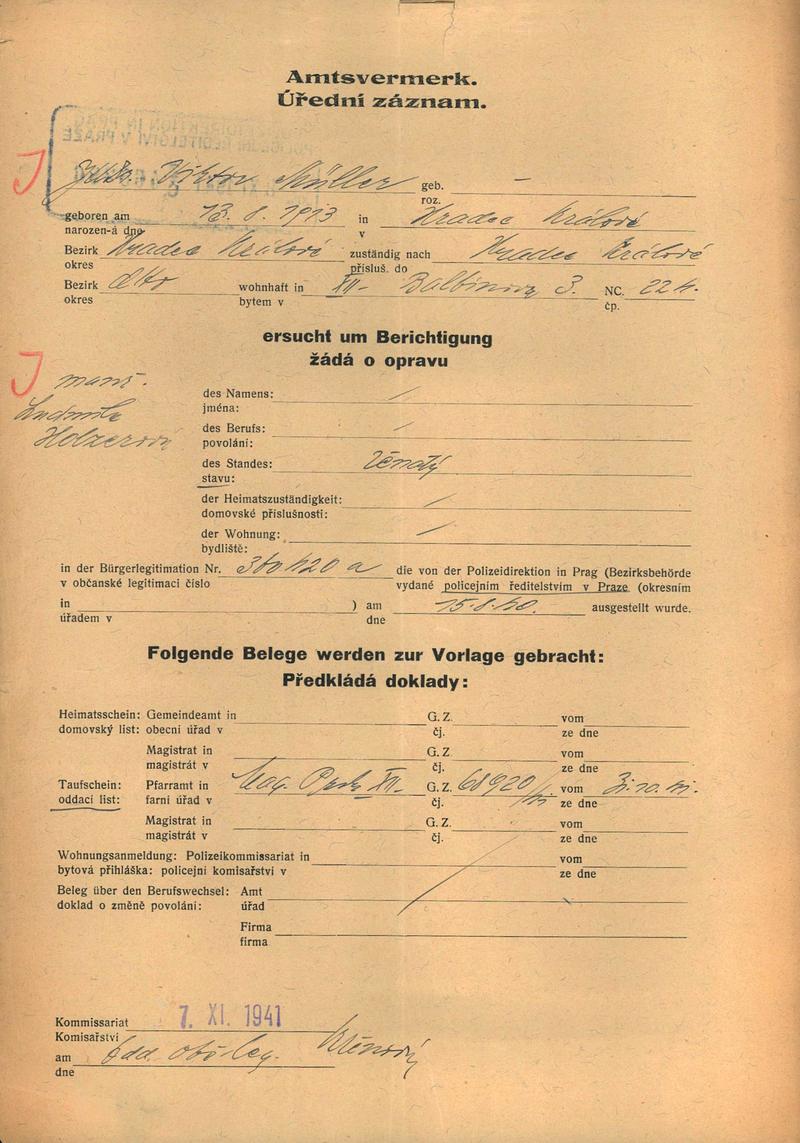 Amtsvermerk.
Úřední záznam.
JUDr. Viktor Müller geb. —
roz.
geboren am 13. 8. 1913 in Hradec Králové
narozen-á dne v
Bezirk Hradec Králové zuständig nach Hradec Králové
okres přísluš. do
Bezirk dtto wohnhaft in XII- Balbínova 3. NC. 224.
okres bytem v čp.
ersucht um Berichtigung
žádá o opravu
J manž.
Ludmila
Holzerová
des Namens: /
jména:
des Berufs: /
povolání:
des Standes: ženatý
stavu:
der Heimatszuständigkeit: /
domovské příslušnosti:
der Wohnung: /
bydliště:
in der Bürgerlegitimation Nr. 360420 a die von der Polizeidirektion in Prag (Bezirksbehörde
v občanské legitimaci číslo vydané policejním ředitelstvím v Praze (okresním
in ) am 15.8.40. ausgestellt wurde.
úřadem v dne
Folgende Belege werden zur Vorlage gebracht:
Předkládá doklady:
Heimatsschein: Gemeindeamt in G. Z. vom
domovský list: obecní úřad v čj. ze dne
Magistrat in G. Z vom
magistrát v čj. ze dne
Taufschein: Pfarramt in Mag. Praha XII- G. Z. 68920/ vom 31.10.41.
oddací list: farní úřad v čj. ze dne
Magistrat in G. Z. vom
magistrát v čj. ze dne
Wohnungsanmeldung: Polizeikommissariat in vom
bytová přihláška: policejní komisařství v ze dne
Beleg über den Berufswechsel: Amt
doklad o změně povolání: úřad
Firma
firma
Kommissariat 7. XI. 1941
Komisařství
am odd. obč. leg.
dne